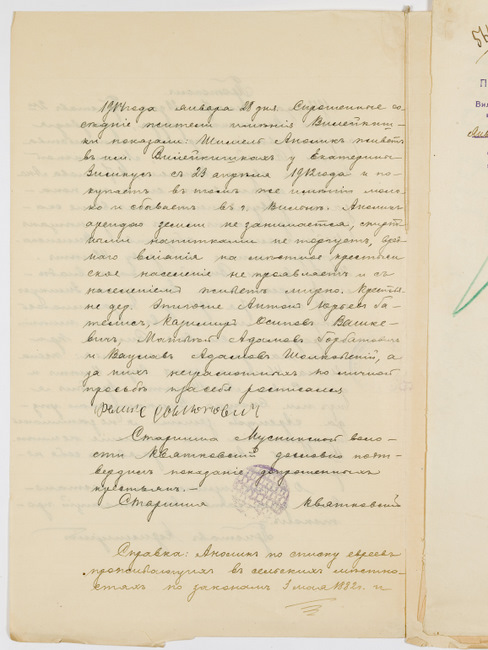 1914 года января 28 дня. Спрошенные со-
седние жители имения Вилейкиш-
ки показали: Шмуель Анолик живетъ
въ им. Вилейкишкахъ у Екатерины
съ 23 апреля 1912 года и по-
купаетъ въ томъ же имении моло-
ко и сбываетъ въ г. Вильне. Аноликъ
арендою земли не занимается, спирт-
ными напитками не торгуетъ, вред-
наго влияния на местное крестьян-
ское население не проявляетъ и съ
населениемъ живетъ мирно. Крестья-
не дер. Антон Юрьевъ Ба-
Казимир Осиповъ Вашке-
вичъ, Матвей Адамовъ Горбатович
и Вацлавъ Адамовъ Шолковский, а
за нихъ неграмотныхъ по личной
просьбе и за себя росписался
Старшина Мусникской воло-
сти Квятковский дословно под-
твердилъ показание допрошенныхъ
крестьянъ. —
Старшина Квятковский
Справка: Аноликъ по списку евреевъ
проживающихъ въ сельскихъ местно-
стяхъ по законамъ 3 мая 1882 г. и